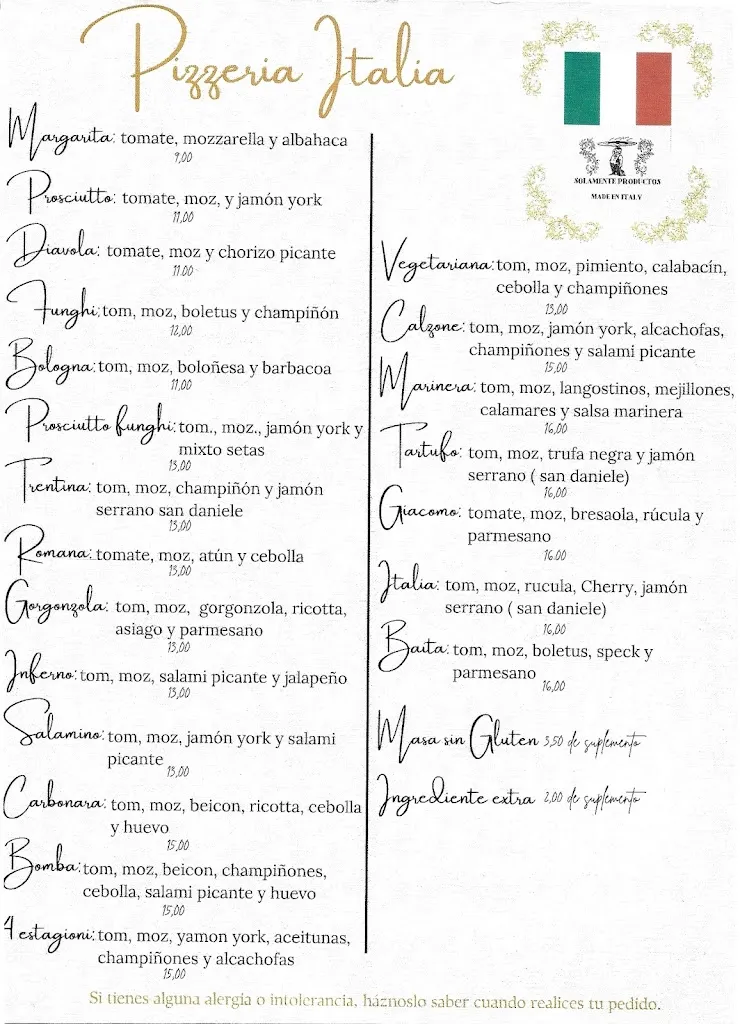 Pizzeria Italia
SOLAMENTE PRODUCTOS
MADE IN ITALY
Margarita: tomate, mozzarella y albahaca
9,00
Prosciutto: tomate, moz, y jamón york
11,00
Diavola: tomate, moz y chorizo picante
11.00
Funghi: tom, moz, boletus y champiñón
12,00
Bologna: tom, moz, boloñesa y barbacoa
11,00
Prosciutto funghi: tom., moz., jamón york y
mixto setas
13,00
Trentina: tom, moz, champiñón y jamón
serrano san daniele
13,00
Romana: tomate, moz, atún y cebolla
13,00
Gorgonzola: tom, moz, gorgonzola, ricotta,
asiago y parmesano
13,00
Inferno: tom, moz, salami picante y jalapeño
13,00
Salamino: tom, moz, jamón york y salami
picante
13,00
Carbonara: tom, moz, beicon, ricotta, cebolla
y huevo
15,00
Bomba: tom, moz, beicon, champiñones,
cebolla, salami picante y huevo
15,00
4 estagioni: tom, moz, yamon york, aceitunas,
champiñones y alcachofas
15,00
Vegetariana: tom, moz, pimiento, calabacín,
cebolla y champiñones
13,00
Calzone: tom, moz, jamón york, alcachofas,
champiñones y salami picante
15,00
Marinera: tom, moz, langostinos, mejillones,
calamares y salsa marinera
16,00
Tartufo: tom, moz, trufa negra y jamón
serrano ( san daniele)
16,00
Giacomo: tomate, moz, bresaola, rúcula y
parmesano
16.00
Italia: tom, moz, rucula, Cherry, jamón
serrano ( san daniele)
16,00
Baita: tom, moz, boletus, speck y
parmesano
16,00
Masa sin Gluten 3,50 de suplemento
Ingrediente extra 2,00 de suplemento
Si tienes alguna alergia o intolerancia, háznoslo saber cuando realices tu pedido.